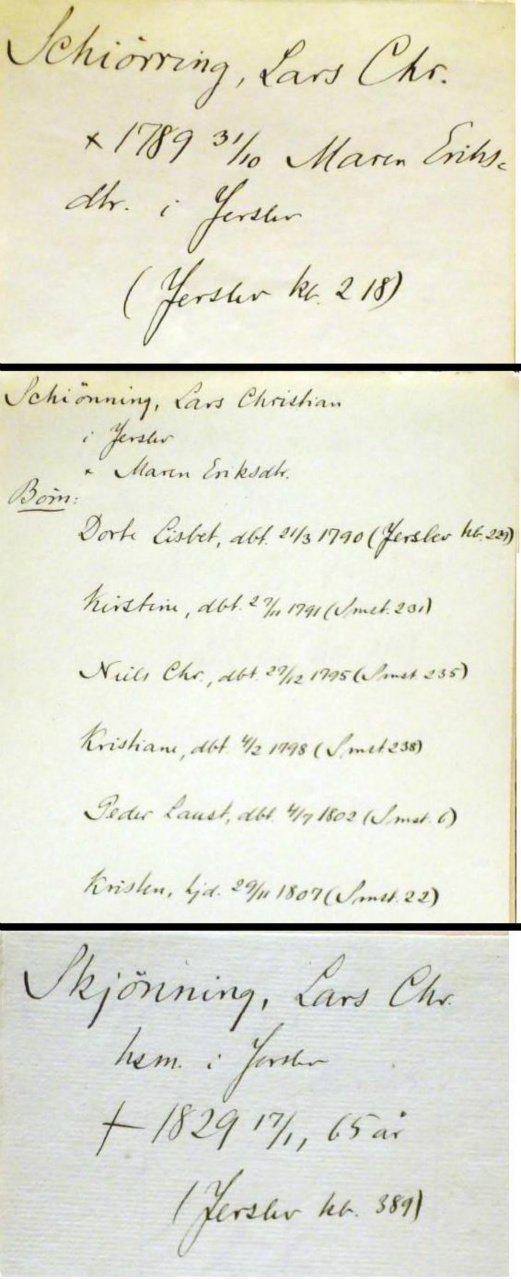 Schiörring, Lars Chr.
× 1789 31/10 Maren Eriks-
dtr. i Jerslev
(Jerslev kb. 2 18)
Schiönning, Lars Christian
i Jerslev
× Maren Eriksdtr.
Börn:
Dorte Lisbet, dbt. 21/3 1790 (Jerslev kb. 229)
Kirstine, dbt. 27/11 1791 (Smst. 231)
Niels Chr., dbt. 27/12 1795 (Smst. 235)
Kristiane, dbt. 4/2 1798 (Smst 238)
Peder Laust, dbt. 4/7 1802 (Smst. 6)
Kristen, hjd. 29/11 1807 (Smst. 22)
Skjönning, Lars Chr.
hsm. i Jerslev
† 1829 17/1, 65 år
(Jerslev kb. 389)